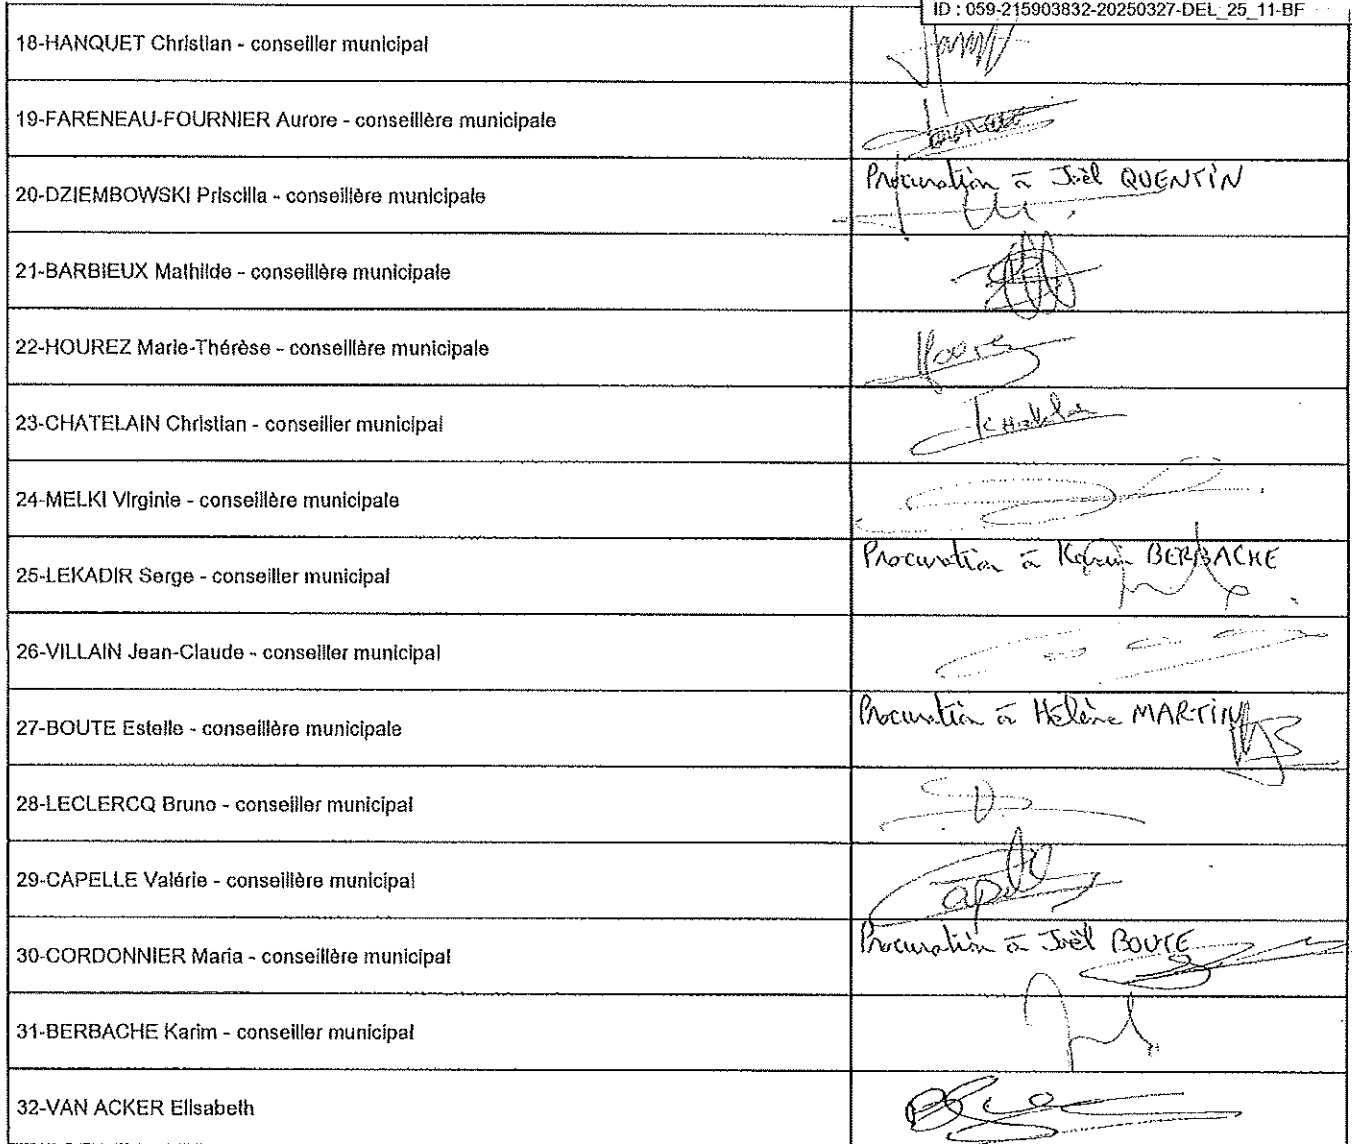 ID : 059-215903832-20250327-DEL_25_11-BF
18-HANQUET Christian - conseiller municipal
19-FARENEAU-FOURNIER Aurore - conseillère municipale
20-DZIEMBOWSKI Priscilla - conseillère municipale
Procuration à Joël QUENTIN
21-BARBIEUX Mathilde - conseillère municipale
22-HOUREZ Marie-Thérèse - conseillère municipale
23-CHATELAIN Christian - conseiller municipal
24-MELKI Virginie - conseillère municipale
25-LEKADIR Serge - conseiller municipal
Procuration à Karim BERBACHE
26-VILLAIN Jean-Claude - conseiller municipal
27-BOUTE Estelle - conseillère municipale
Procuration à Hélène MARTIN
28-LECLERCQ Bruno - conseiller municipal
29-CAPELLE Valérie - conseillère municipal
30-CORDONNIER Maria - conseillère municipal
Procuration à Joël BOUTE
31-BERBACHE Karim - conseiller municipal
32-VAN ACKER Elisabeth